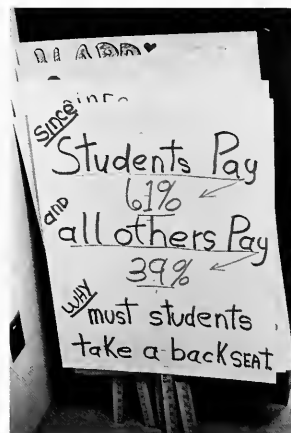 Since
Students Pay
61%
AND
all others Pay
39%
WHY
must students
take a back SEAT